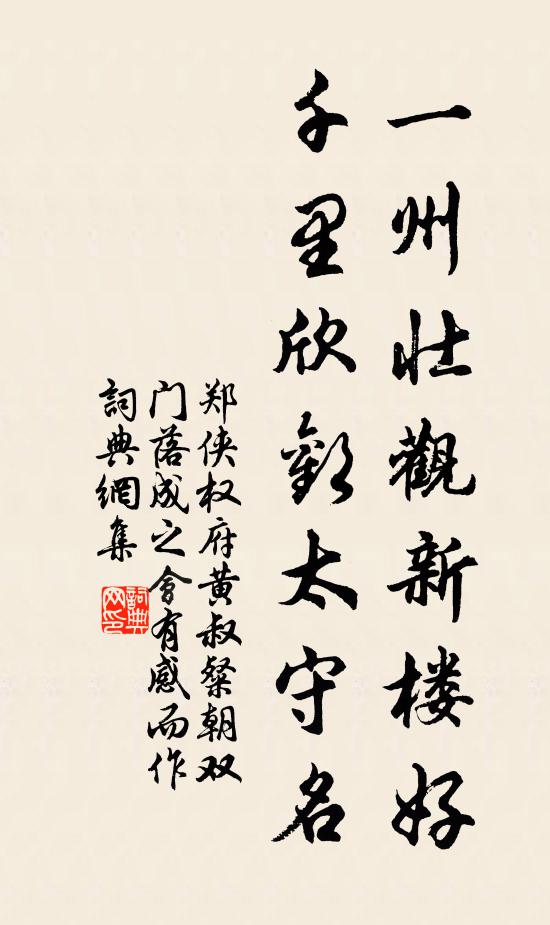 一州壮觀新楼好
千里欣歡太守名
郑侠权府黄叔粲朝双
门落成之會有感而作
詞典網集
詞典网印